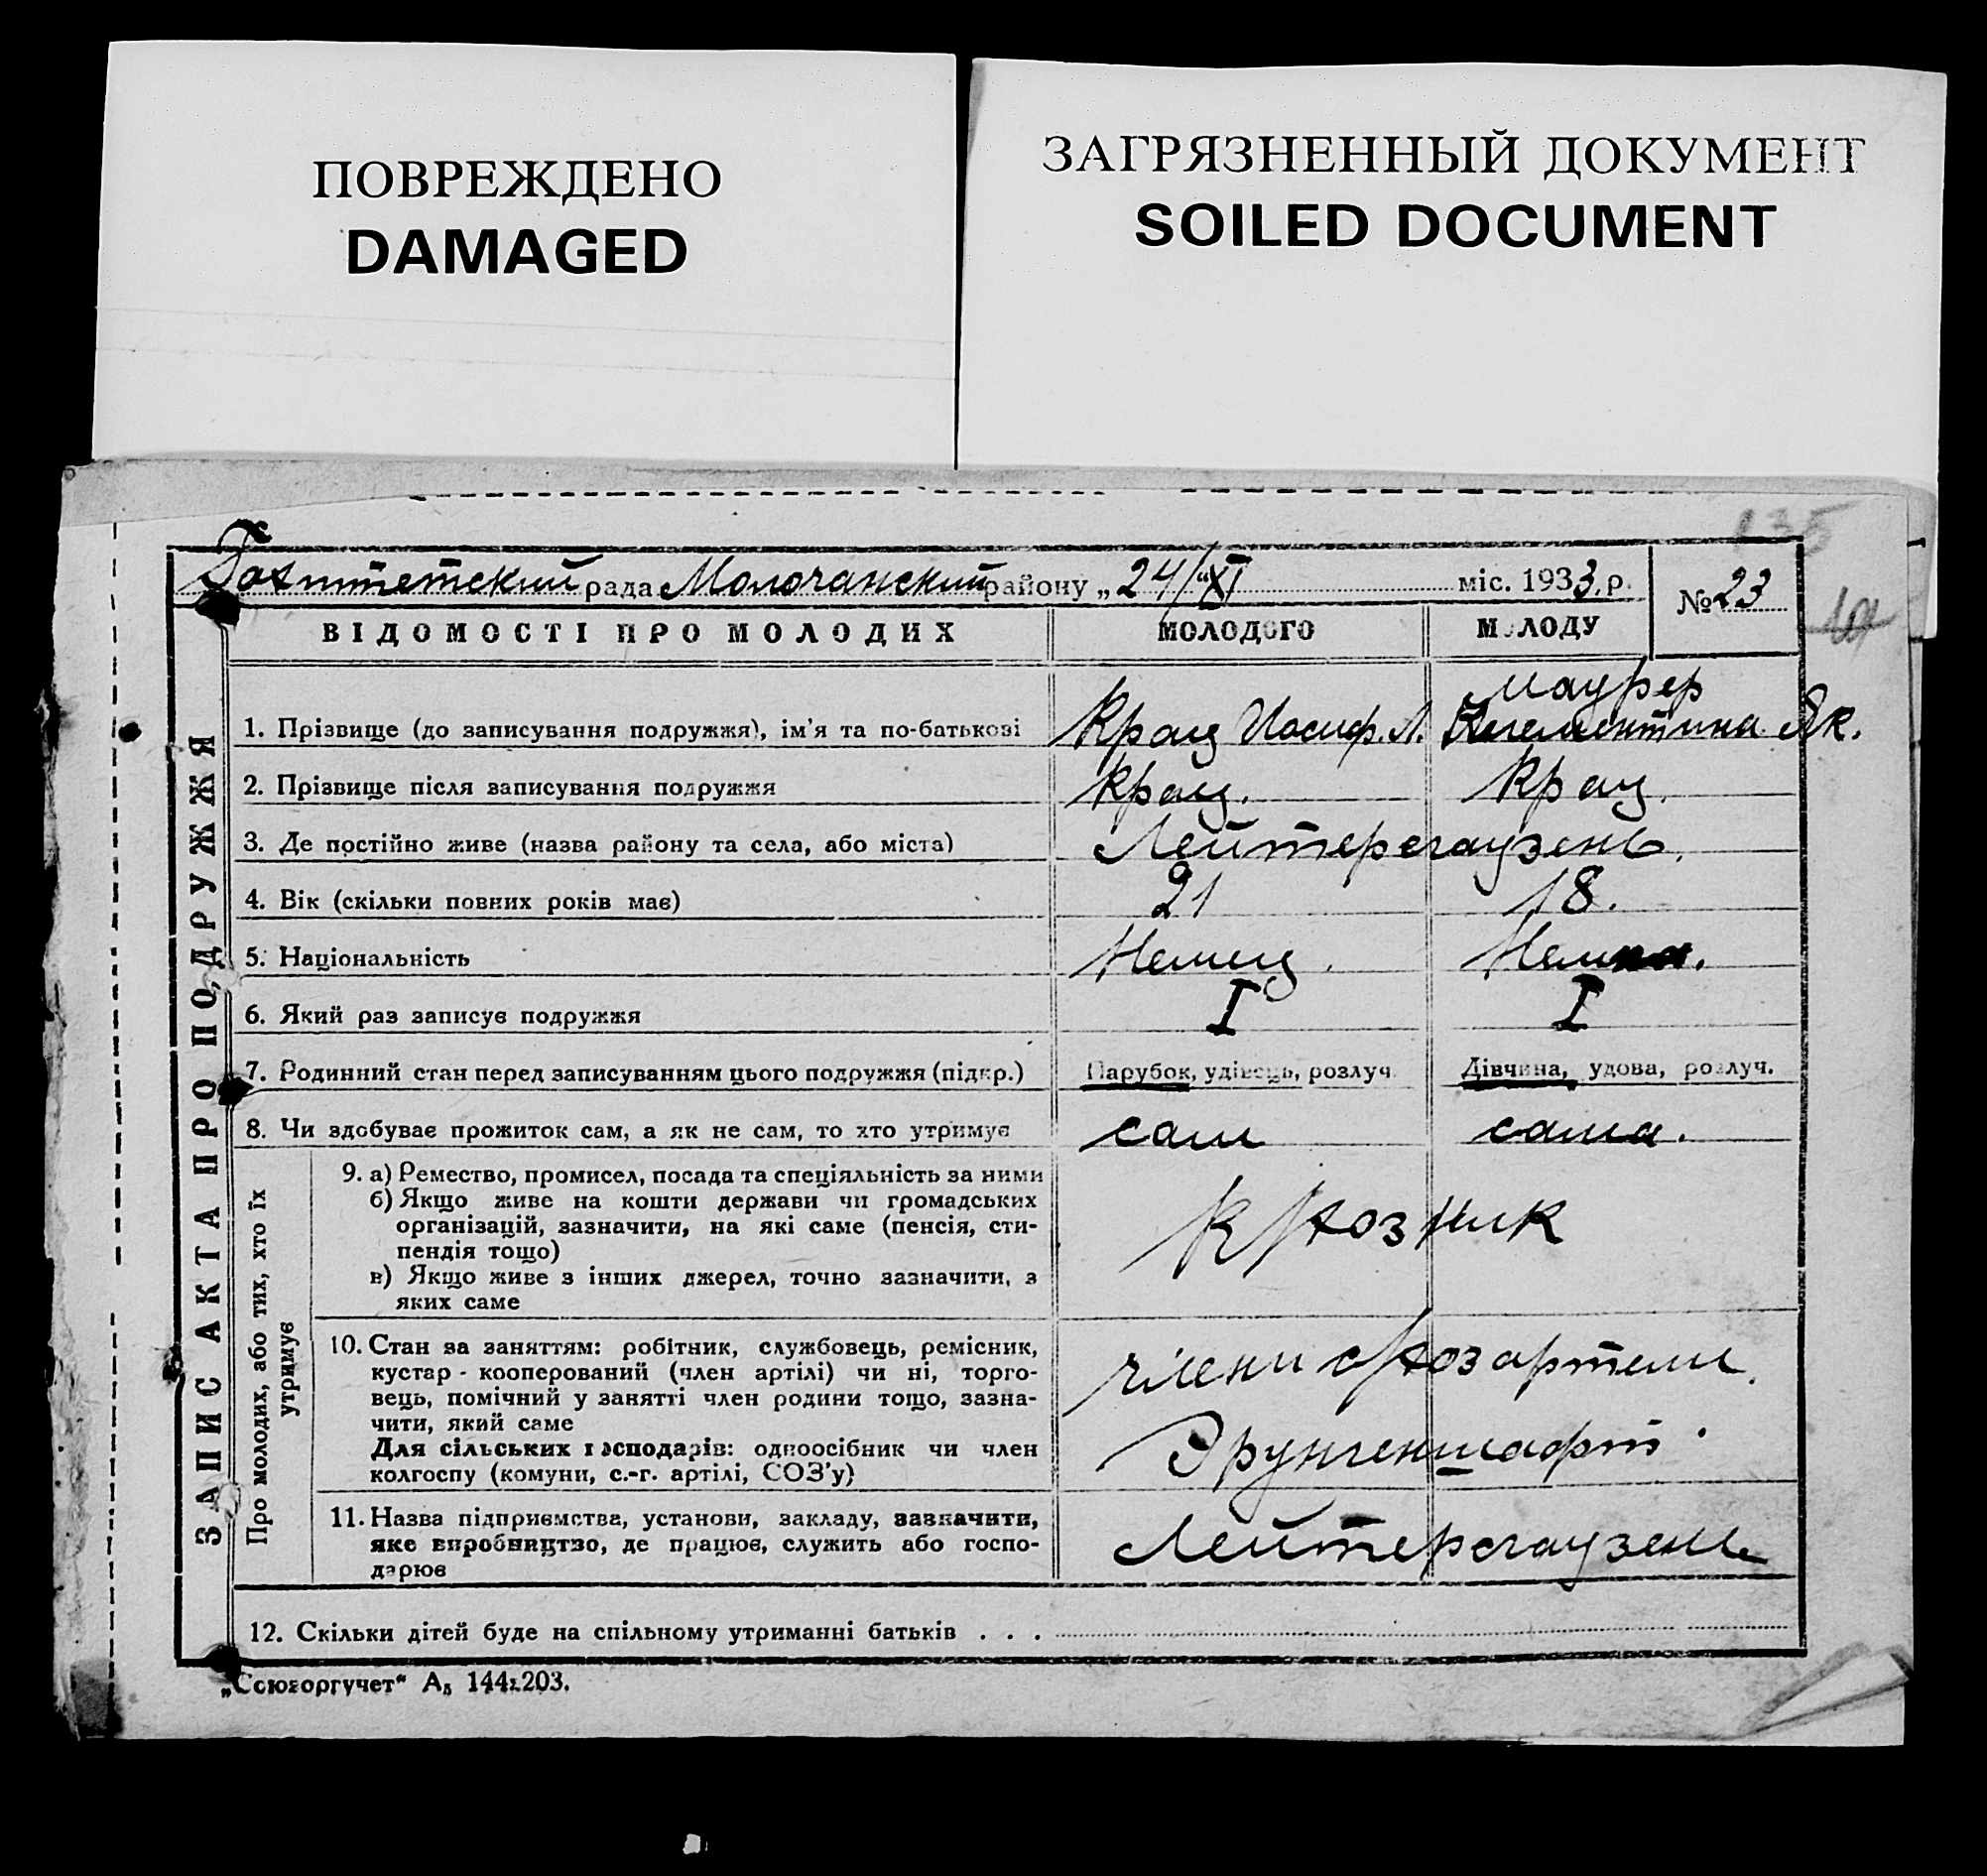 ПОВРЕЖДЕНО
DAMAGED
ЗАГРЯЗНЕННЫЙ ДОКУМЕНТ
SOILED DOCUMENT
135
рада Молочанский району „24/XI міс. 1933 р.
№ 23
ВІДОМОСТІ ПРО МОЛОДИХ МОЛОДОГО МОЛОДУ
ЗАПИС АКТА ПРО ПОДРУЖЖЯ
Маурер
1. Прізвище (до записування подружжя), ім'я та по-батькові Крац Иосиф. Л. Клементина Як.
2. Прізвище після записування подружжя Крац. Крац.
3. Де постійно живе (назва району та села, або міста) Лейтерсгаузень.
4. Вік (скільки повних років має) 21 18.
5. Національність Немец. Немка.
6. Який раз записує подружжя I I
7. Родинний стан перед записуванням цього подружжя (підкр.) Парубок, удівець, розлуч. Дівчина, удова, розлуч.
8. Чи здобуває прожиток сам, а як не сам, то хто утримує сам сама.
Про молодих, або тих, хто їх утримує
9. а) Ремество, промисел, посада та спеціяльність за ними
б) Якщо живе на кошти держави чи громадських
організацій, зазначити, на які саме (пенсія, сти-
пендія тощо)
в) Якщо живе з інших джерел, точно зазначити, з
яких саме
к/хозник
10. Стан за заняттям: робітник, службовець, ремісник,
кустар - кооперований (член артілі) чи ні, торго-
вець, помічний у занятті член родини тощо, зазна-
чити, який саме
Для сільських господарів: одноосібник чи член
колгоспу (комуни, с.-г. артілі, СОЗ'у)
члени с/хоз артели.
11. Назва підприємства, установи, закладу, зазначити,
яке виробництво, де працює, служить або госпо-
дарює
Лейтерсгаузень
12. Скільки дітей буде на спільному утриманні батьків . . .
„Союзоргучет"